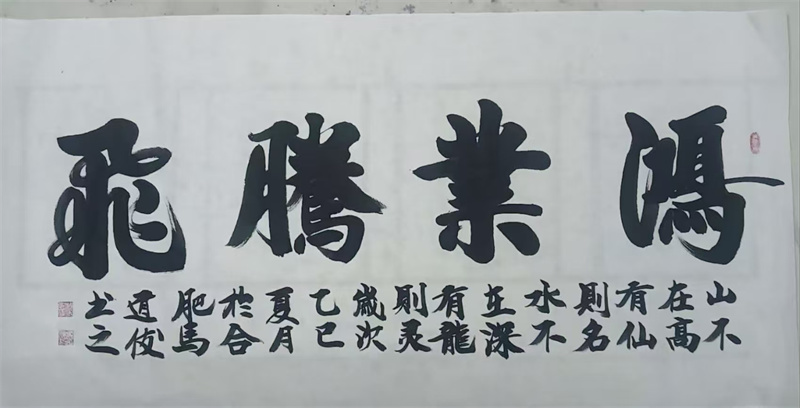 鴻業騰飛
山不
在高
有仙
則名
水不
在深
有龍
則灵
歲次
乙巳
夏月
於合
肥馬
道俊
书之